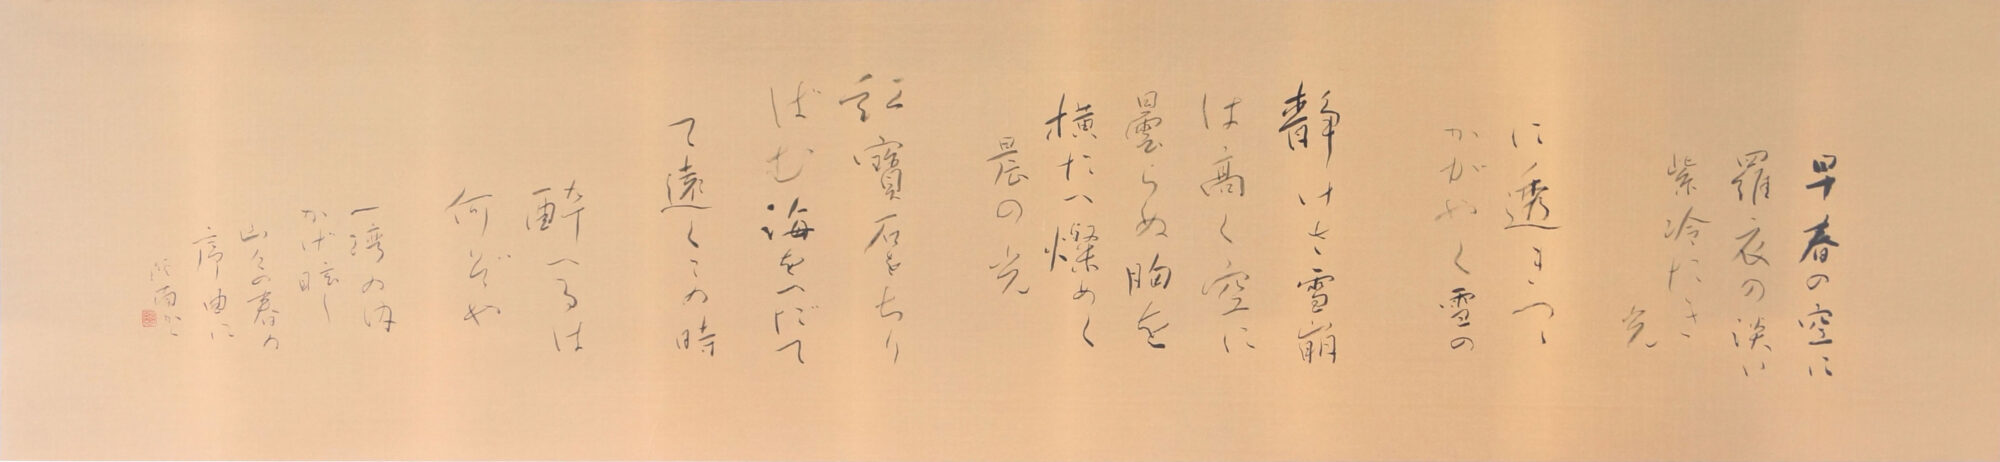 早春の空に
羅衣の淡い
紫冷たき
光
に透きつゝ
かがやく雪の
静けさ雪崩
は高く空に
曇らぬ胸を
横たへ燦めく
晨の光
紅寶石をちり
ばむ海をへだて
て遠くこの時
酔へるは
何ぞや
一湾の内
かげ眩し
山々の春の
序曲に